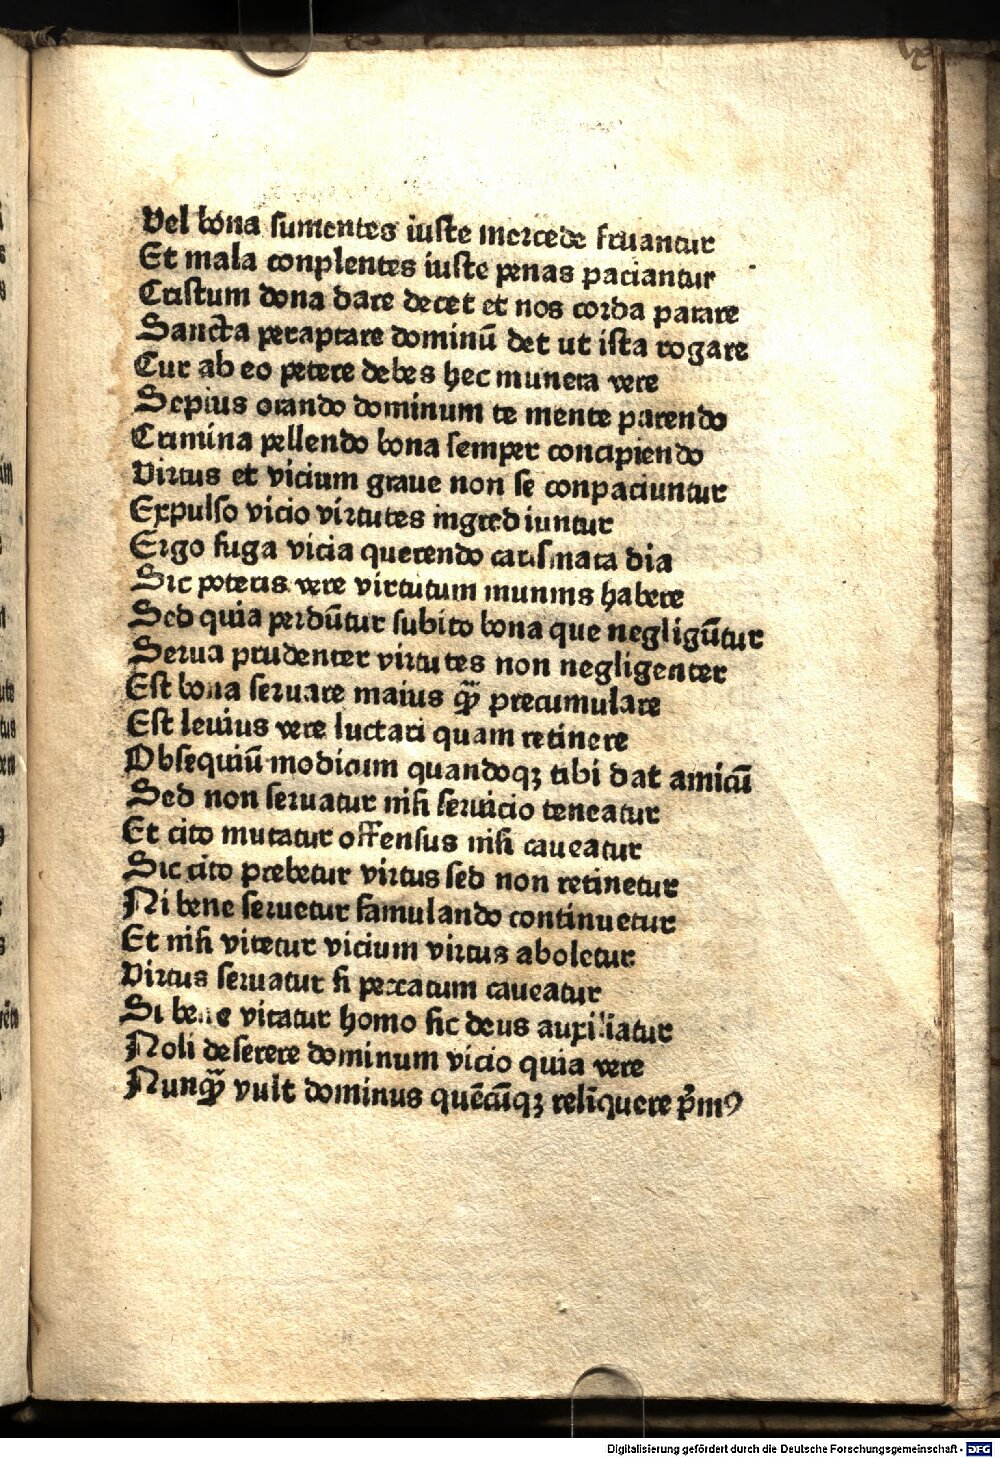 Vel bona sumentes iuste mercede fruantur
Et mala conplentes iuste penas paciantur
Cristum dona dare decet et nos corda parare
Sancta peraptare dominū det ut ista rogare
Cur ab eo petere debes hec munera vere
Sepius orando dominum te mente parendo
Crimina pellendo bona semper concipiendo
Virtus et vicium graue non se conpaciuntur
Expulso vicio virtutes ingrediuntur
Ergo fuga vicia querendo carismata dia
Sic poteris vere virtutum munus habere
Sed quia perdūtur subito bona que negligūtur
Serua prudenter virtutes non negligenter
Est bona seruare maius qȝ̄ precumulare
Est levius vere luctari quam retinere
Obsequiū modicum quandoqȝ tibi dat amicū
Sed non seruatur nisi seruicio teneatur
Et cito mutatur offensus nisi caueatur
Sic cito prebetur virtus sed non retinetur
Ni bene seruetur famulando continuetur
Et nisi vitetur vicium virtus aboletur
Virtus seruatur si peccatum caueatur
Si bene vitatur homo sic deus auxiliatur
Noli deserere dominum vicio quia vere
Nunqȝ̄ vult dominus quēcūqȝ relīquere p̄mꝰ
Digitalisierung gefördert durch die Deutsche Forschungsgemeinschaft - DFG